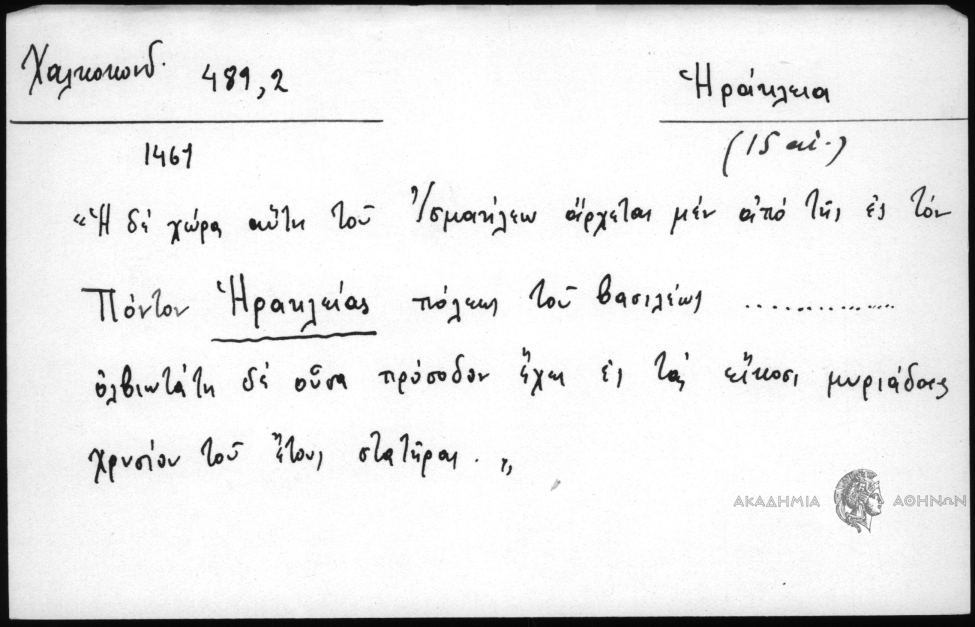 Χαλκοκονδ. 489,2
Ἡράκλεια
1461
(15 αἰ.)
"Ἡ δέ χώρα αὕτη τοῦ Ἰσμαήλεω ἄρχεται μέν ἀπό τῆς ἐς τόν
Πόντον Ἡρακλείας πόλεως τοῦ βασιλέως ..............
ὀλβιωτάτη δέ οὖσα πρόσοδον ἔχει ἐς τάς εἴκοσι μυριάδας
χρυσίου τοῦ ἔτους στατῆρας. "
ΑΚΑΔΗΜΙΑ ΑΘΗΝΩΝ